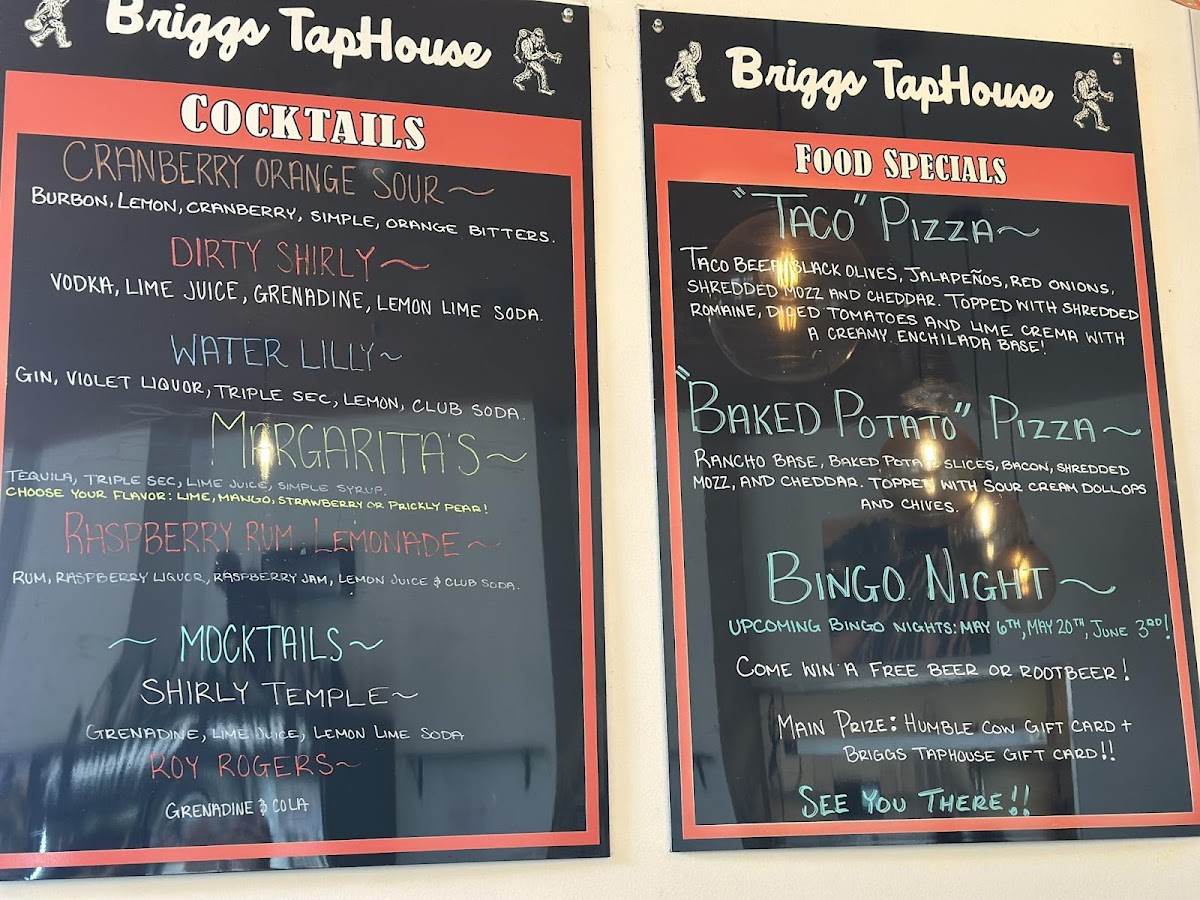 Briggs TapHouse
COCKTAILS
CRANBERRY ORANGE SOUR~
BURBON, LEMON, CRANBERRY, SIMPLE, ORANGE BITTERS.
DIRTY SHIRLY~
VODKA, LIME JUICE, GRENADINE, LEMON LIME SODA.
WATER LILLY~
GIN, VIOLET LIQUOR, TRIPLE SEC, LEMON, CLUB SODA.
MARGARITA'S~
TEQUILA, TRIPLE SEC, LIME JUICE, SIMPLE SYRUP.
CHOOSE YOUR FLAVOR: LIME, MANGO, STRAWBERRY OR PRICKLY PEAR!
RASPBERRY RUM LEMONADE~
RUM, RASPBERRY LIQUOR, RASPBERRY JAM, LEMON JUICE & CLUB SODA.
~ MOCKTAILS~
SHIRLY TEMPLE~
GRENADINE, LIME JUICE, LEMON LIME SODA
ROY ROGERS~
GRENADINE & COLA
Briggs TapHouse
FOOD SPECIALS
"TACO" PIZZA~
TACO BEEF, BLACK OLIVES, JALAPEÑOS, RED ONIONS,
SHREDDED MOZZ AND CHEDDAR. TOPPED WITH SHREDDED
ROMAINE, DICED TOMATOES AND LIME CREMA WITH
A CREAMY ENCHILADA BASE!
"BAKED POTATO" PIZZA~
RANCHO BASE, BAKED POTATO SLICES, BACON, SHREDDED
MOZZ, AND CHEDDAR. TOPPED WITH SOUR CREAM DOLLOPS
AND CHIVES.
BINGO NIGHT~
UPCOMING BINGO NIGHTS: MAY 6TH, MAY 20TH, JUNE 3RD!
COME WIN A FREE BEER OR ROOTBEER!
MAIN PRIZE: HUMBLE COW GIFT CARD +
BRIGGS TAPHOUSE GIFT CARD!!
SEE YOU THERE!!